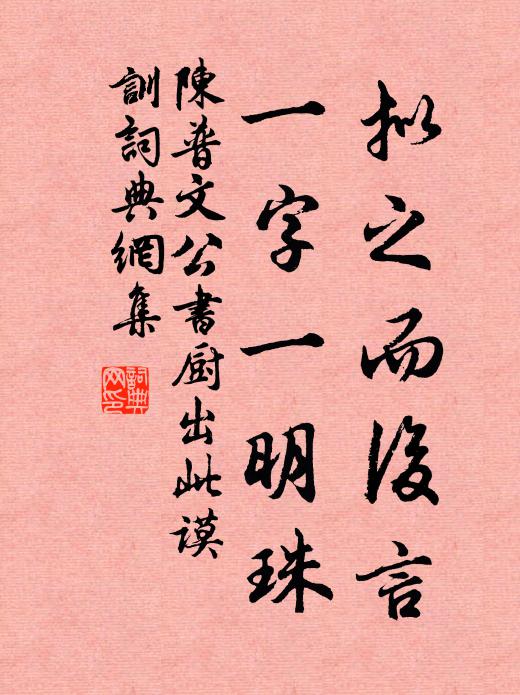 拟之而後言
一字一明珠
陳普文公書厨出此謨
訓詞典網集
詞典網印